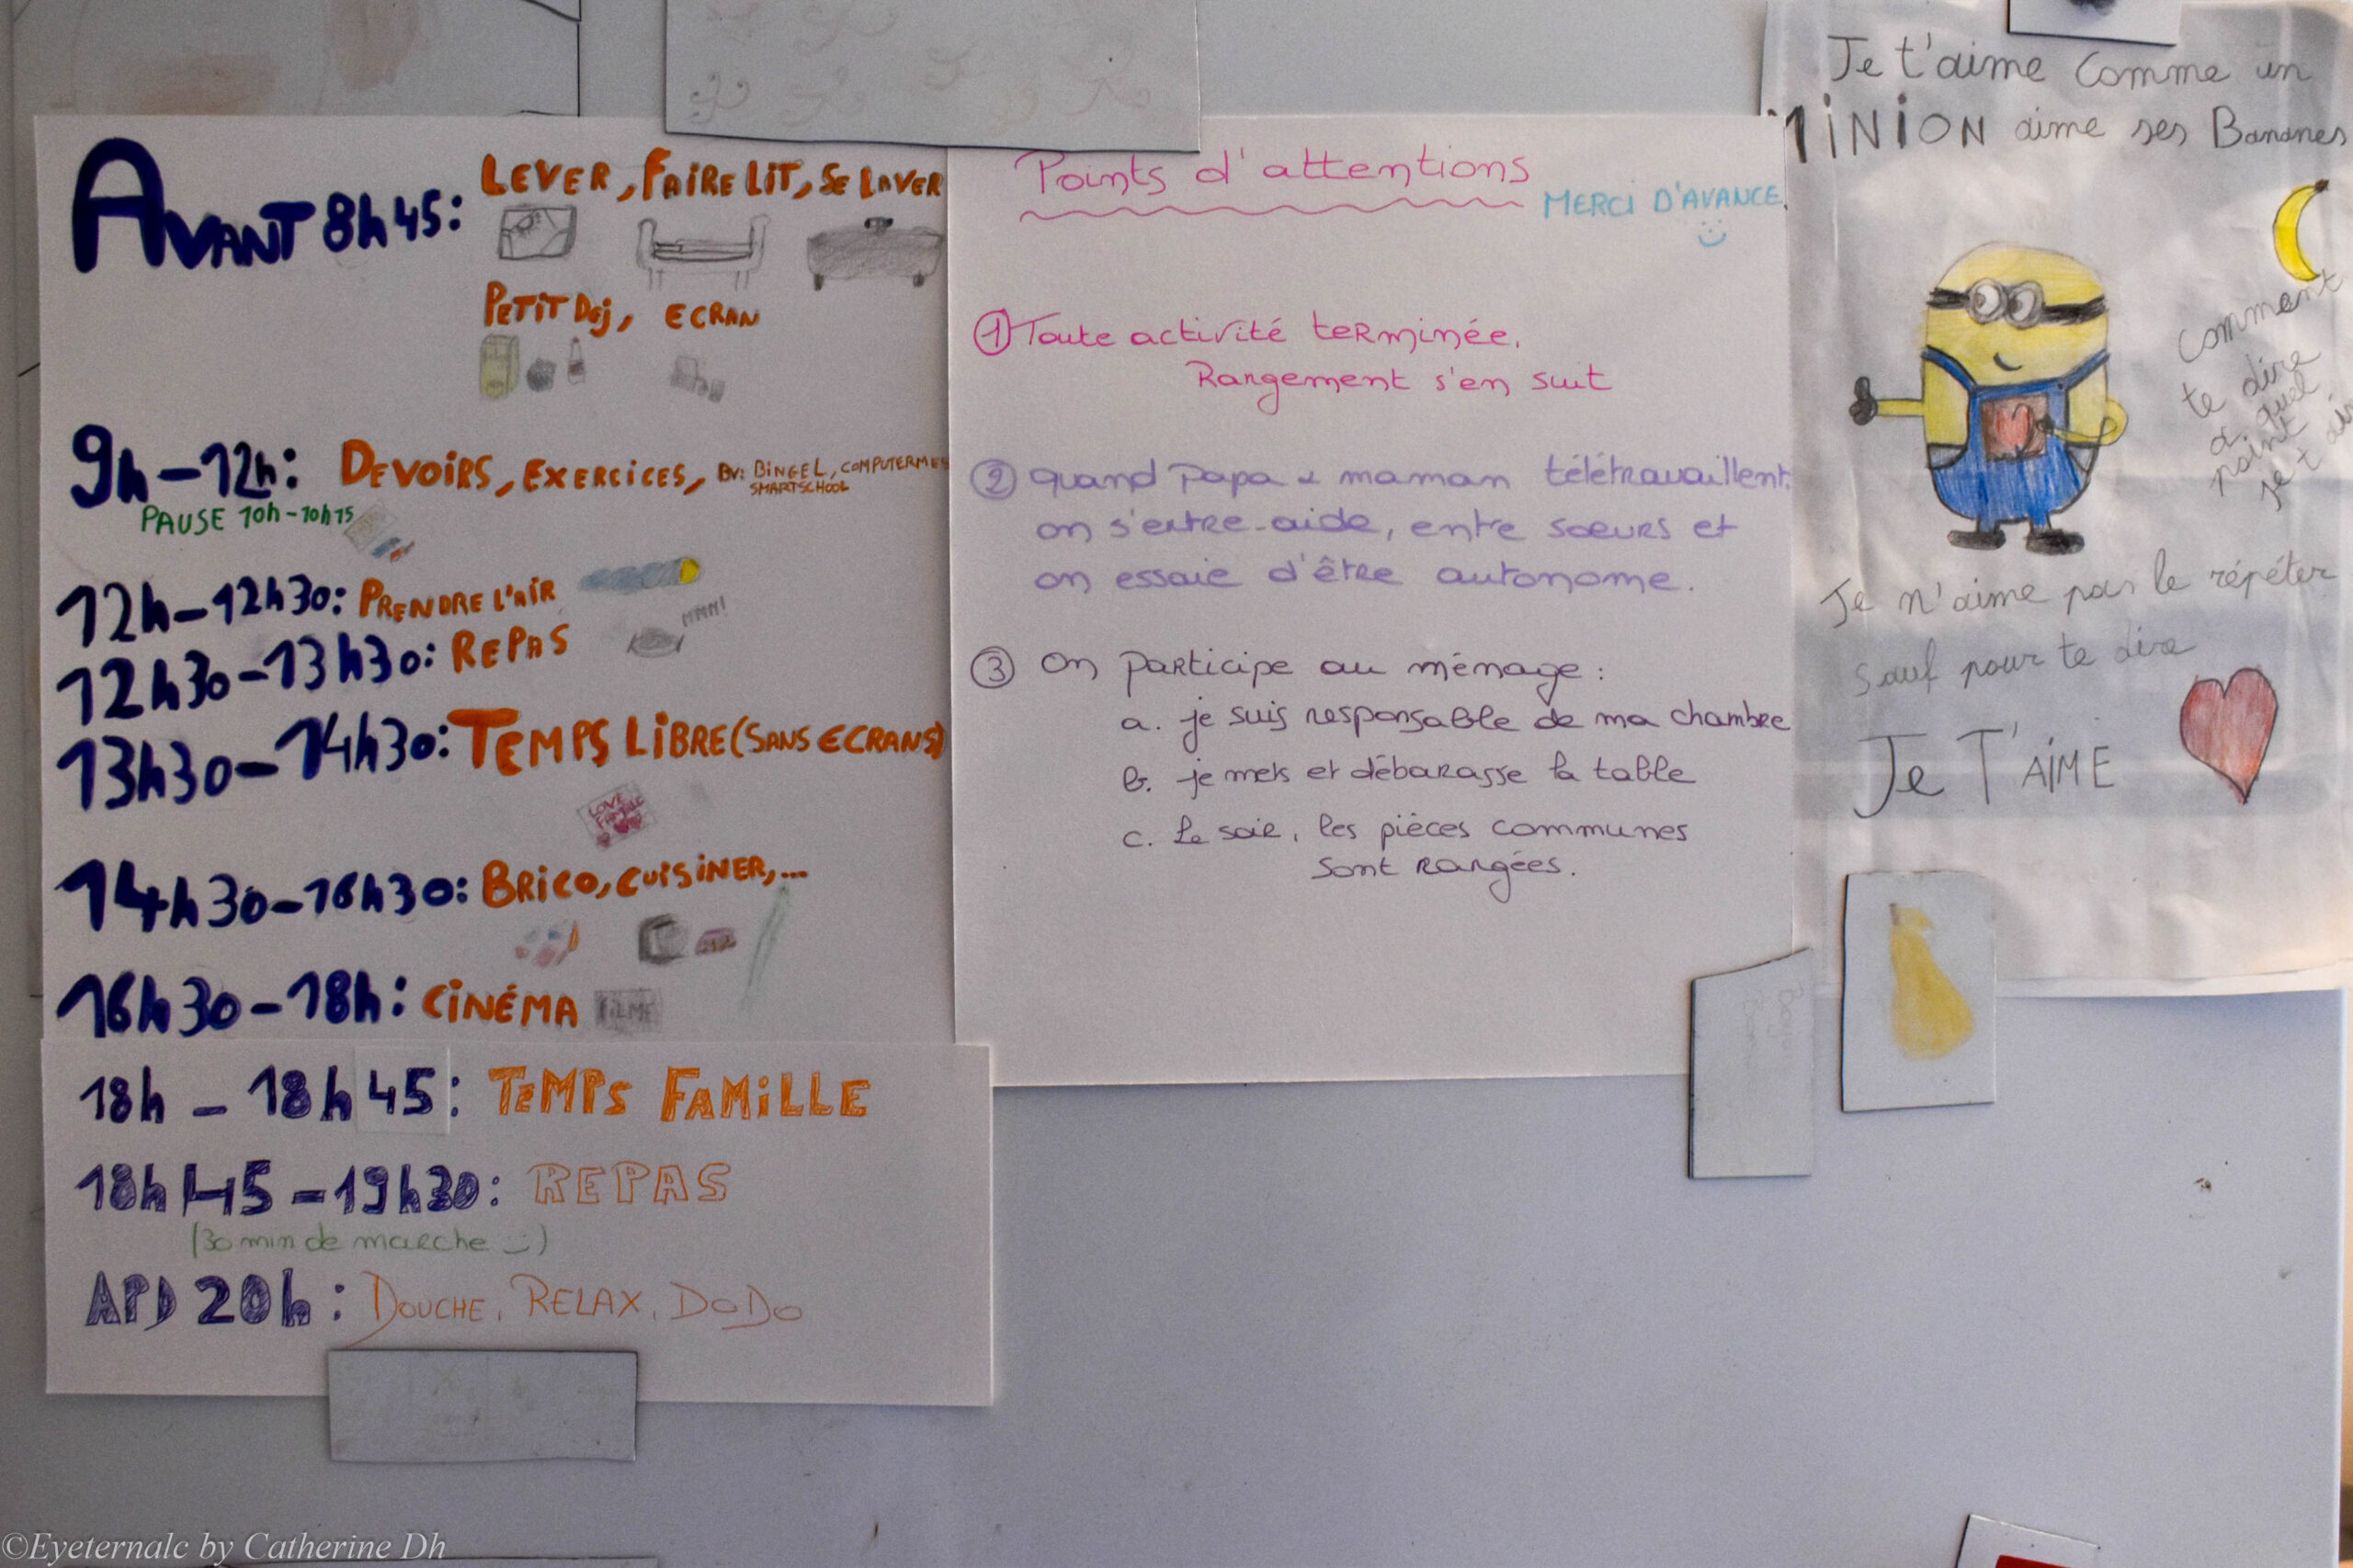 AVANT 8h45: LEVER, FAIRE LIT, SE LAVER
PETIT DEJ, ECRAN
9h-12h: DEVOIRS, EXERCICES, BV: BINGEL, COMPUTERMEE
SMARTSCHOOL
PAUSE 10h-10h15
12h-12h30: PRENDRE L'AIR
MMM!
12h30-13h30: REPAS
13h30-14h30: TEMPS LIBRE (SANS ECRANS)
LOVE
FAMILLE
14h30-16h30: BRICO, CUISINER,...
16h30-18h: CINÉMA
FILME
18h - 18h45: TEMPS FAMILLE
18h45-19h30: REPAS
(30 min de marche :-)
APD 20h: DOUCHE, RELAX, DODO
Points d'attentions
MERCI D'AVANCE.
① Toute activité terminée.
Rangement s'en suit
② quand Papa & maman télétravaillent.
on s'entre-aide, entre soeurs et
on essaie d'être autonome.
③ On participe au ménage :
a. je suis responsable de ma chambre
b. je mets et débarasse la table
c. Le soir, les pièces communes
sont rangées.
Je t'aime comme un
MINION aime ses Bananes
comment
te dire
a quel
point
je t'ai
Je n'aime pas le répéter
sauf pour te dire
Je T'AIME
©Eyeternalc by Catherine Dh